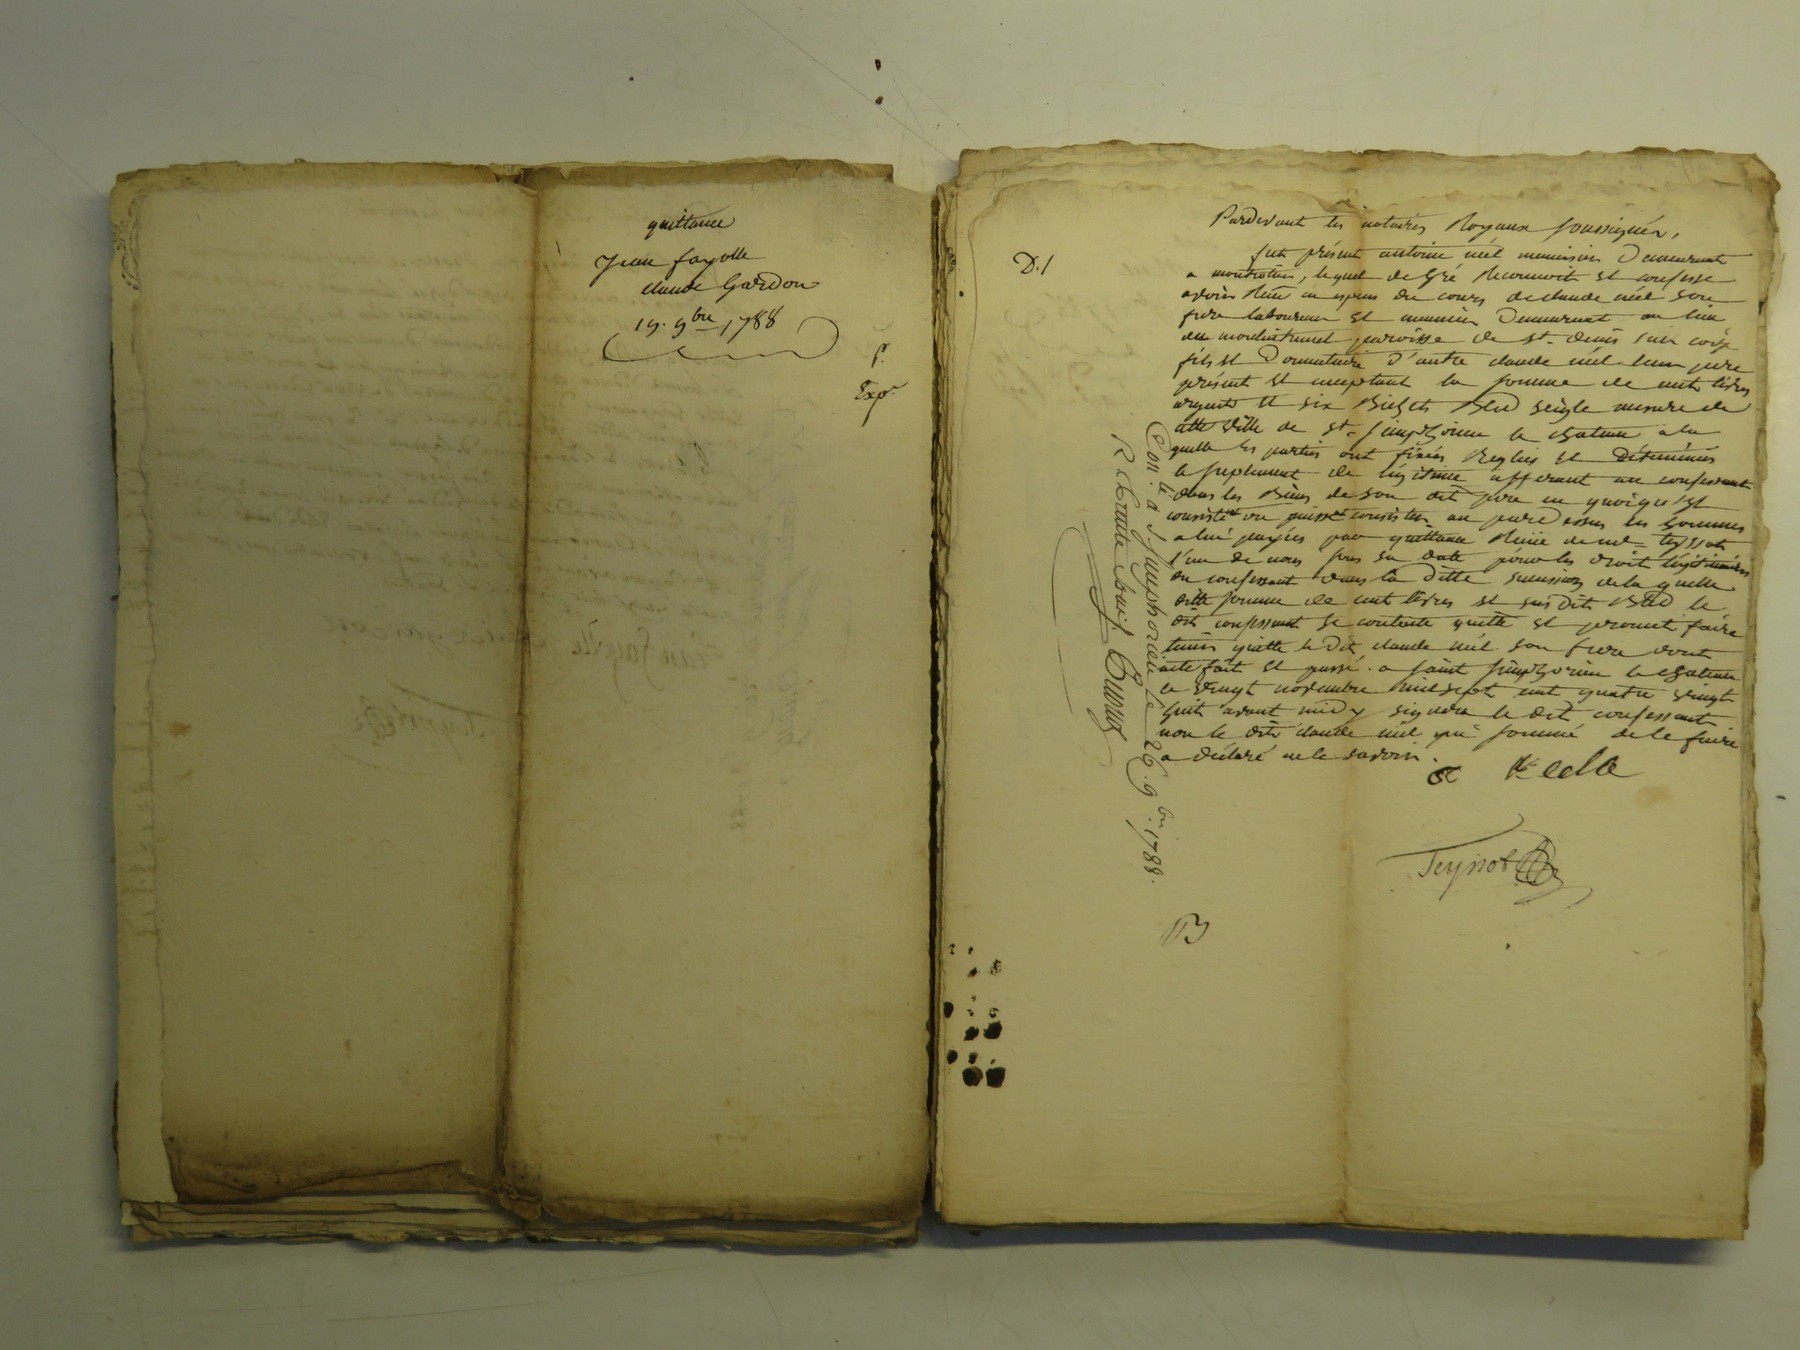 quittance
Jean fayolle
claude Gardon
19. 9bre 1788
P.
Exp.
D./
Pardevant les notaires Royaux soussignés,
fut présent antoine niel meunier Demeurant
a montrottier, lequel de Gré Reconnoit et confesse
avoir Reçu en espèces du cours de claude niel son
frere laboureur et meunier Demeurant au lieu
du paroisse de st. denis sur coize
fils et Donnataire d'autre claude niel leur pere
présent et acceptant la somme de cent livres
argent et six Bichets Bled seigle mesure de
cette ville de st. simphorien le chateau a la
quelle les parties ont fixées Reglés et déterminés
le suplement de légitime afferant au confessant
dans les Biens de son dit pere en quoiqu'il
consistent ou puissent consister au pardessus les sommes
a lui payées par quittance Reçue de me. teyssot
l'un de nous sous sa date pour les droit légitimaires
du confessant dans la ditte succession de la quelle
ditte somme de cent livres et susdit Bled le
dit confessant se contente quitte et promet faire
tenir quitte le dit claude niel son frere dont
acte fait et passé a saint simphorien le chateau
le vingt novembre mil sept cent quatre vingt
huit avant midy signera le dit confessant
non le dit claude niel qui sommé de le faire
a déclaré ne le savoir.
Teyssot
Con. lé a St. Simphorien le 26. 9bre 1788.
R trante
B